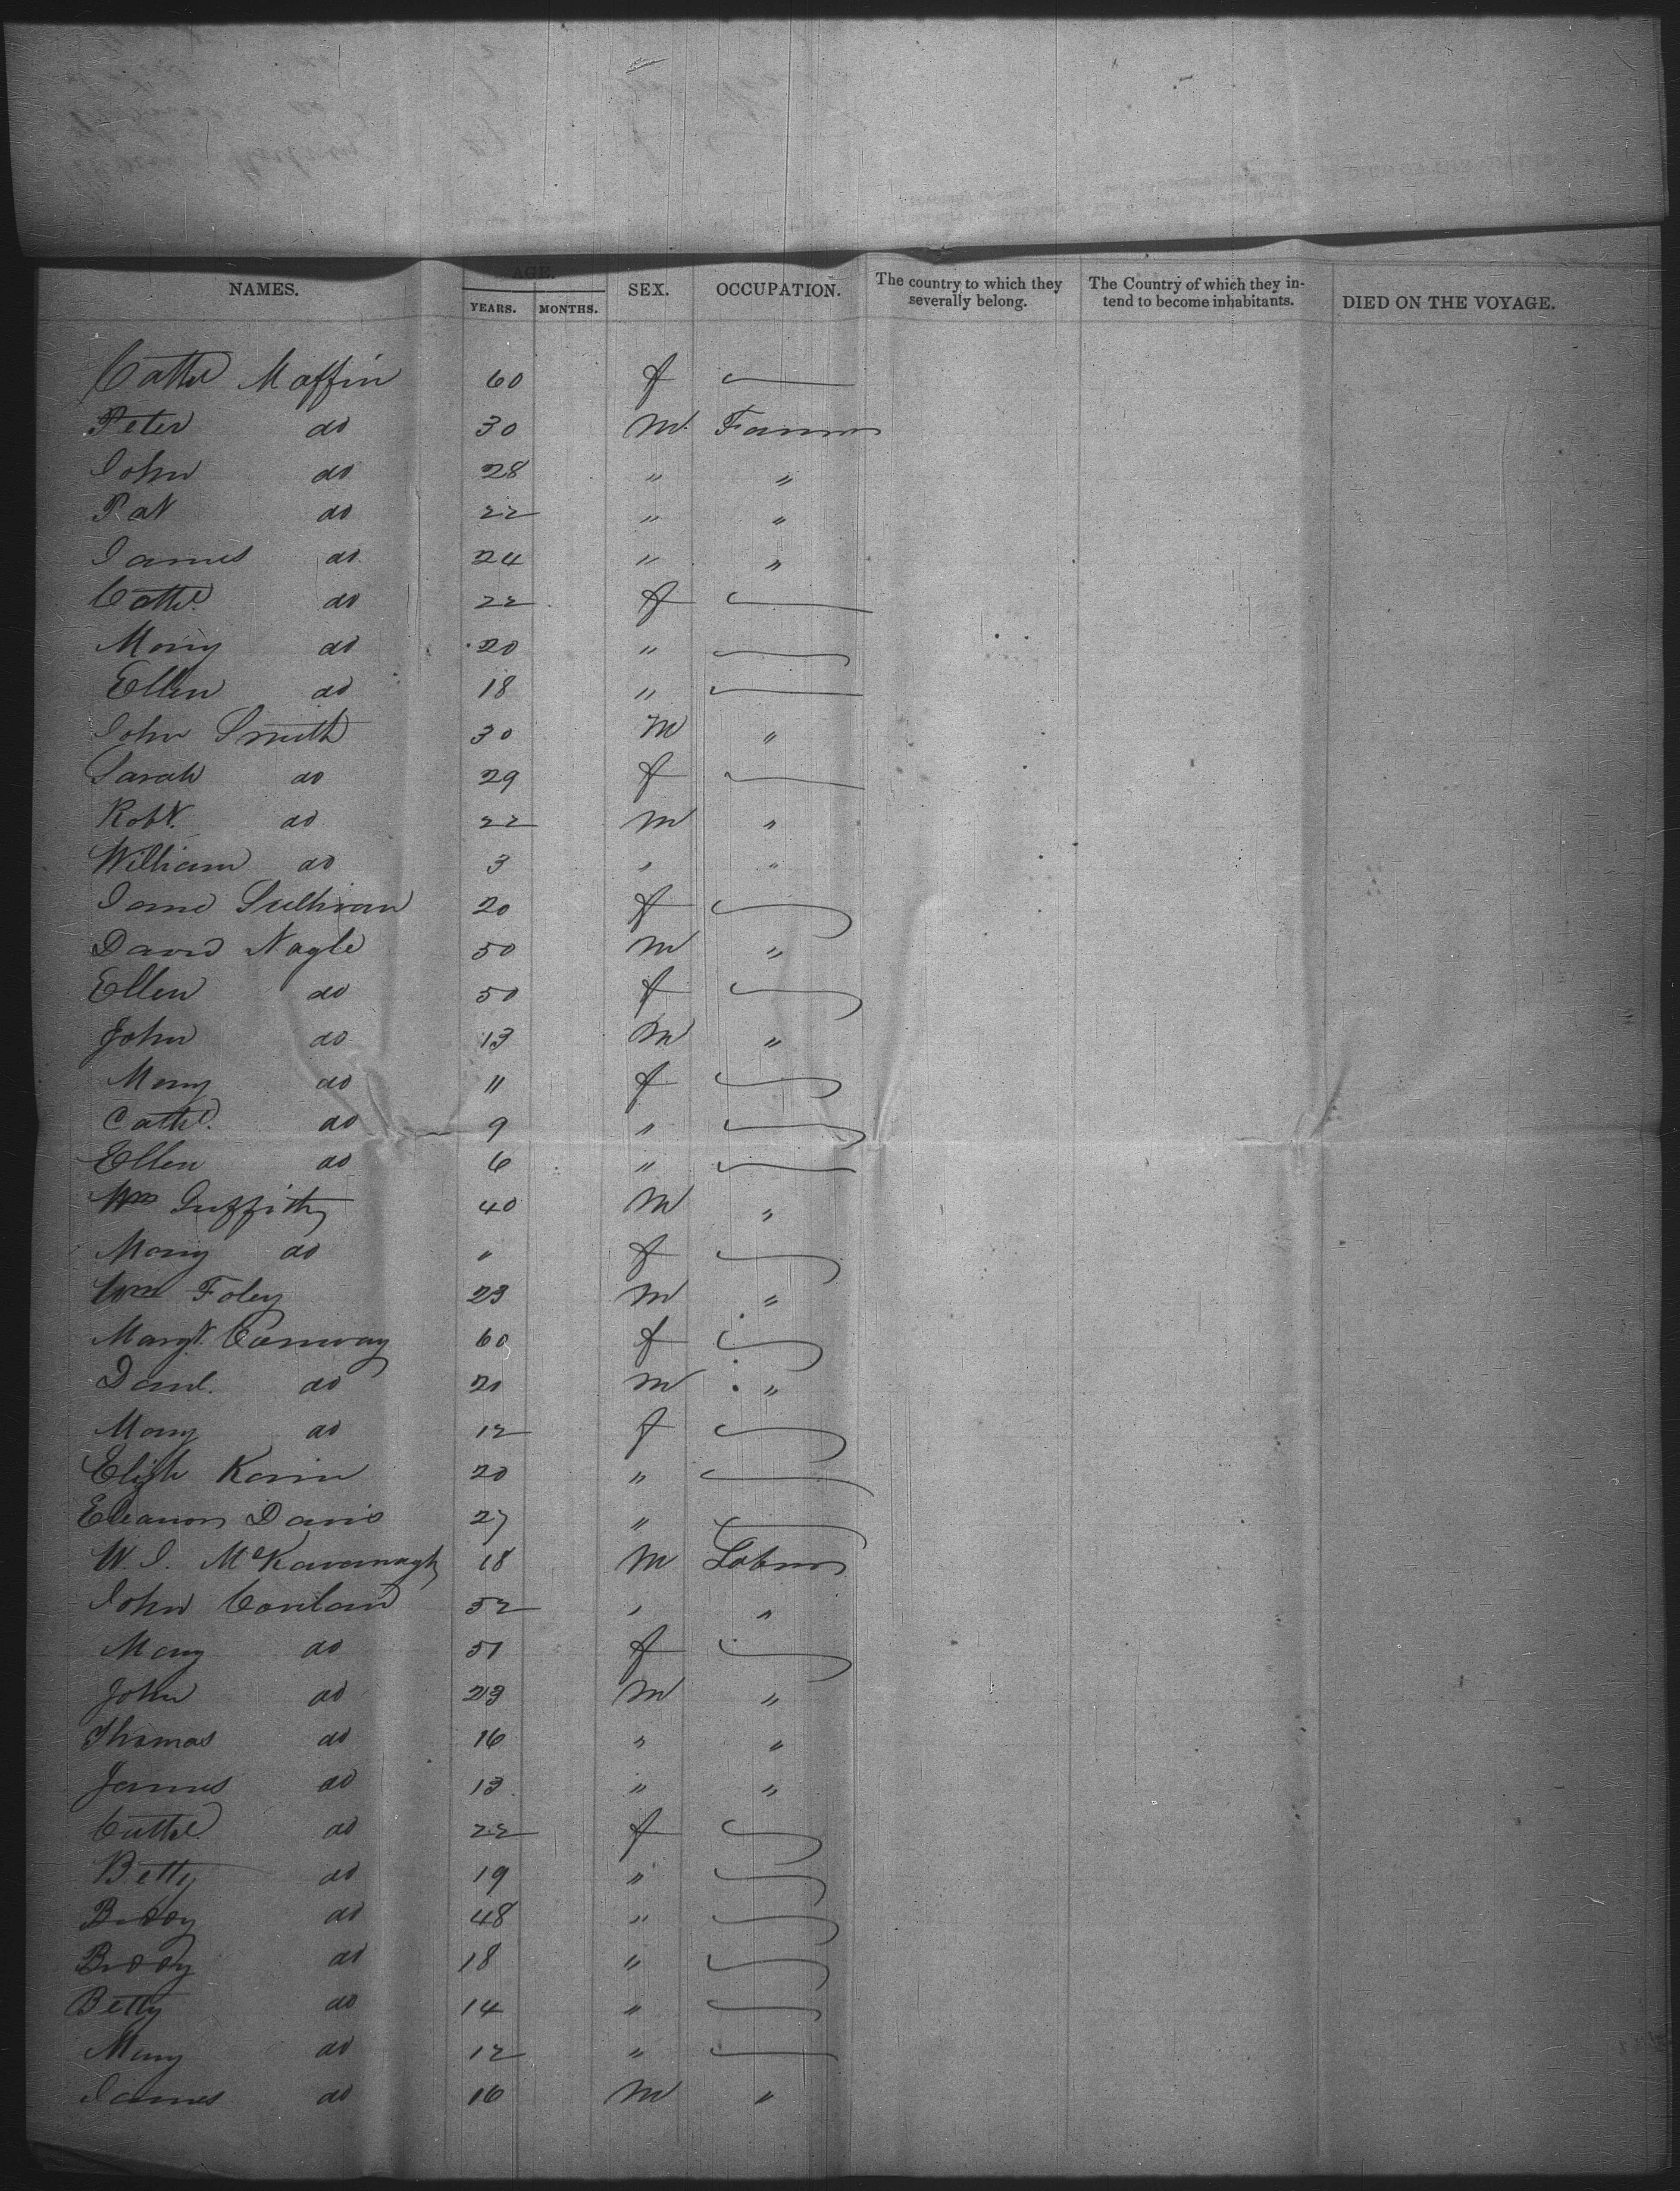 NAMES. AGE. SEX. OCCUPATION. The country to which they severally belong. The Country of which they intend to become inhabitants. DIED ON THE VOYAGE.
YEARS. MONTHS.
Cathe Maffin 60 f —
Peter do 30 M. Farmer
John do 28 " "
Pat do 22 " "
James do 24 " "
Cathe. do 22 f —
Mary do 20 " —
Ellen do 18 " —
John Smith 30 M "
Sarah do 29 f —
Robt. do 22 M "
William do 3 " "
Jane Sullivan 20 f —
David Nagle 50 M "
Ellen do 50 f —
John do 13 M "
Mary do 11 f —
Cathe. do 9 " —
Ellen do 6 " —
Wm Griffith 40 M "
Mary do " f —
Wm Foley 23 M "
Margt. Conway 60 f —
Danl. do 20 M "
Mary do 12 f —
Elizh 20 " —
Eleanor Davis 27 " —
W. J. McKavanagh 18 M Labrer
John Conlan 52 " "
Mary do 51 f —
John do 23 M "
Thomas do 16 " "
James do 13 " "
Cathe. do 22 f —
Betty do 19 " —
Biddy do 48 " —
Biddy do 18 " —
Betty do 14 " —
Mary do 12 " —
James do 16 M "